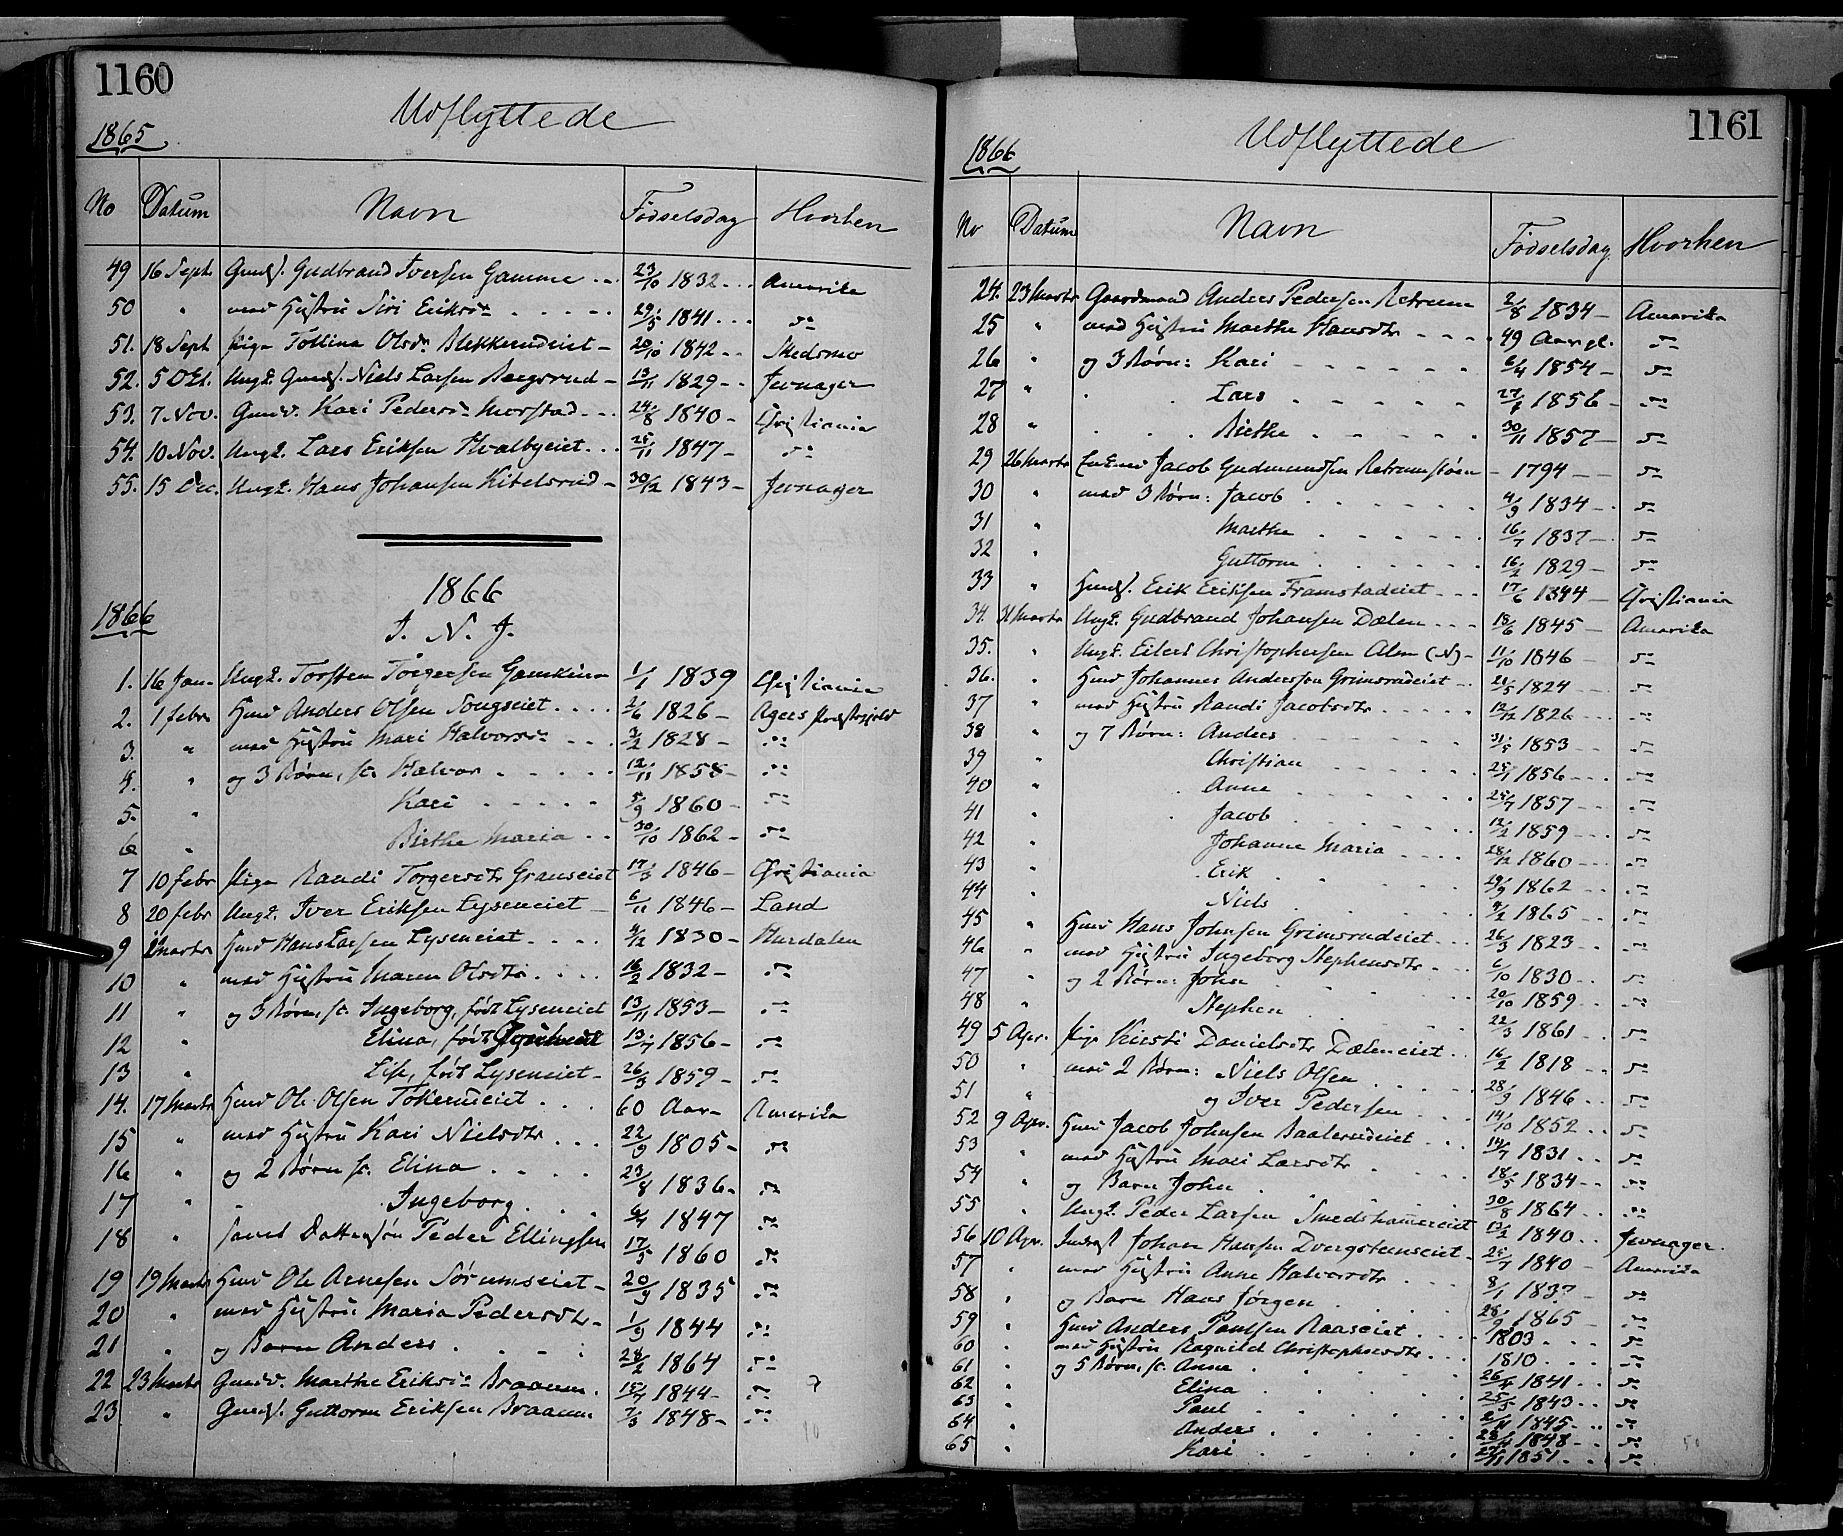 1160
Udflyttede
1865
No Datum Navn Fødselsdag Hvorhen
49 16 Sept Gmdf. Gudbrand Iversen Gamme 23/10 1832 Amerika
50 " med Hustru Siri Eriksd. 29/5 1841 do
51. 18 Sept Pige Tollina Olsd. Blekkerudeiet 20/10 1842 Skedsmo
52. 5 Oct. Ungk. Gmdf. Niels Larsen Bergsrud 13/11 1829 Jevnager
53. 7 Nov. Gmdd. Kari Pedersd. Morstad 24/8 1840 Christiania
54. 10 Nov. Ungk. Lars Eriksen Hvalbyeiet 25/11 1847 do
55. 15 Dec. Ungk. Hans Johansen Kittelsrud 30/12 1843 Jevnager
1866
1866
I. N. J.
1. 16 Jan Ungk. Torsten Torgersen Gamkinn 1/1 1839 Christiania
2. 1 febr Huusm Anders Olsen Songseiet 2/6 1826 Agers Præstegjeld
3. " med Hustru Mari Halvorsd. 3/2 1828 do
4. " og 3 Børn, s: Halvor 12/11 1858 do
5. " Kari 5/9 1860 do
6 " Birthe Maria 30/10 1862 do
7 10 febr Pige Randi Torgersdtr Granseiet 17/3 1846 Christiania
8 20 febr Ungk. Iver Eriksen Lyseneiet 6/11 1846 Land
9 2 Marts Huusm Hans Larsen Lyseneiet 4/12 1830 Hurdalen
10 " med Hustru Maren Olsdtr 16/2 1832 do
11 " og 3 Børn, s: Ingeborg, født Lyseneiet 13/11 1853 do
12 " Elina, født 13/7 1856 do
13 " Lise, født Lyseneiet 26/3 1859 do
14. 17 Marts Huusm Ole Olsen Tokerudeiet 60 Aar Amerika
15 " med Hustru Kari Nielsdtr 22/9 1805 do
16 " og 2 Børn s: Elina 23/8 1836 do
17 " " Ingeborg 6/4 1847 do
18 " samt Dattersøn Peder Ellingsen 17/5 1860 do
19 19 Marts Huusm Ole Arnesen Sørumseiet 20/9 1835 do
20 " med Hustru Maria Pedersdtr 1/9 1844 do
21 " og Barn Anders 28/2 1864 do
22 23 Marts Gmdd. Marthe Eriksd. Braaum 15/7 1844 do
23 " Gmdf. Guttorm Eriksen Braaum 7/3 1848 do
1161
Udflyttede
1866
No Datum Navn Fødselsdag Hvorhen
24. 23 Marts Gaardmand Anders Pedersen Retrum 2/8 1834 Amerika
25 " med Hustru Marthe Hansdtr 49 Aar gl. do
26 " og 3 Børn: Kari 2/4 1854 do
27 " Lars 27/6 1856 do
28 " Birthe 30/11 1857 do
29 26 Marts Enkem Jacob Gudmundsen Retrumstøen 1794 do
30 " med 3 Børn: Jacob 4/9 1834 do
31 " Marthe 16/7 1837 do
32 " Guttorm 16/2 1829 do
33 " Huusf. Erik Eriksen Framstadeiet 17/6 1844 Christiania
34. 31 Marts Ungk. Gudbrand Johansen Dælen 18/6 1845 Amerika
35. Ungk. Eilert Christophersen Alm (N) 11/10 1846 do
36. " Huusm Johannes Anderssen Grimsrudeiet 21/5 1824 do
37 " med Hustru Randi Jacobsdtr 12/12 1826 do
38 " og 7 Børn: Anders 31/5 1853 do
39 " Christian 25/1 1856 do
40 " Anne 25/7 1857 do
41 " Jacob 12/2 1859 do
42 " Johanne Maria 28/12 1860 do
43 " Erik 29/9 1862 do
44 " Niels 9/2 1865 do
45 " Huusm Hans Johnsen Grimsrudeiet 26/3 1823 do
46 " med Hustru Ingeborg Stephensdtr 6/10 1830 do
47 " og 2 Børn: John 20/10 1859 do
48 " Stephen 22/3 1861 do
49 5 Apr. Pige Kirsti Danielsdtr Dæleneiet 16/2 1818 do
50 " med 2 Børn: Niels Olsen 28/9 1846 do
51 " og Iver Pedersen 14/10 1852 do
52 9 Apr. Huusm Jacob Johnsen Baalerudeiet 14/7 1831 do
53 " med Hustru Mari Larsdtr 18/5 1834 do
54 " og Barn John 30/8 1864 do
55 " Ungk. Peder Larsen Smedshamereiet 13/2 1840 Jevnager
56 10 Apr. Inderst Johan Hansen Dvergstenseiet 25/7 1840 Amerika
57 " med Hustru Anne Halvorsdtr 8/1 1837 do
58 " og Barn Hans Jørgen 28/9 1865 do
59 " Huusm Anders Paulsen Raaseiet 1803 do
60 " med Hustru Ragnild Christophersdtr 1810 do
61 " og 5 Børn, s: Anna 26/4 1841 do
62 " Elina 25/5 1843 do
63 " Paul 2/11 1845 do
64 " Anders 1848 do
65 " Kari 1851 do